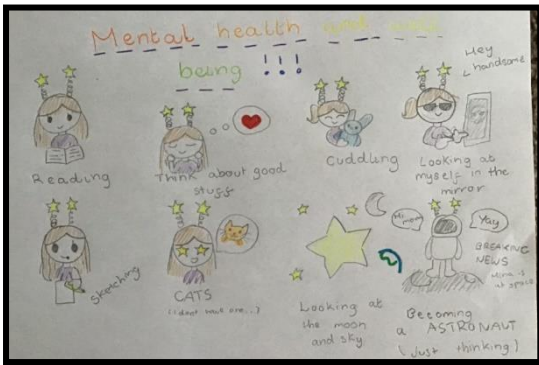 Mental health and well
being !!!
Hey
handsome
Reading
Think about good
stuff
Cuddling
Looking at
myself in the
mirror
Sketching
CATS
(I dont have one...)
Looking at
the moon
and sky
Hi mom
Yay
BREAKING
NEWS
at space
Becoming
a ASTRONAUT
(Just thinking)